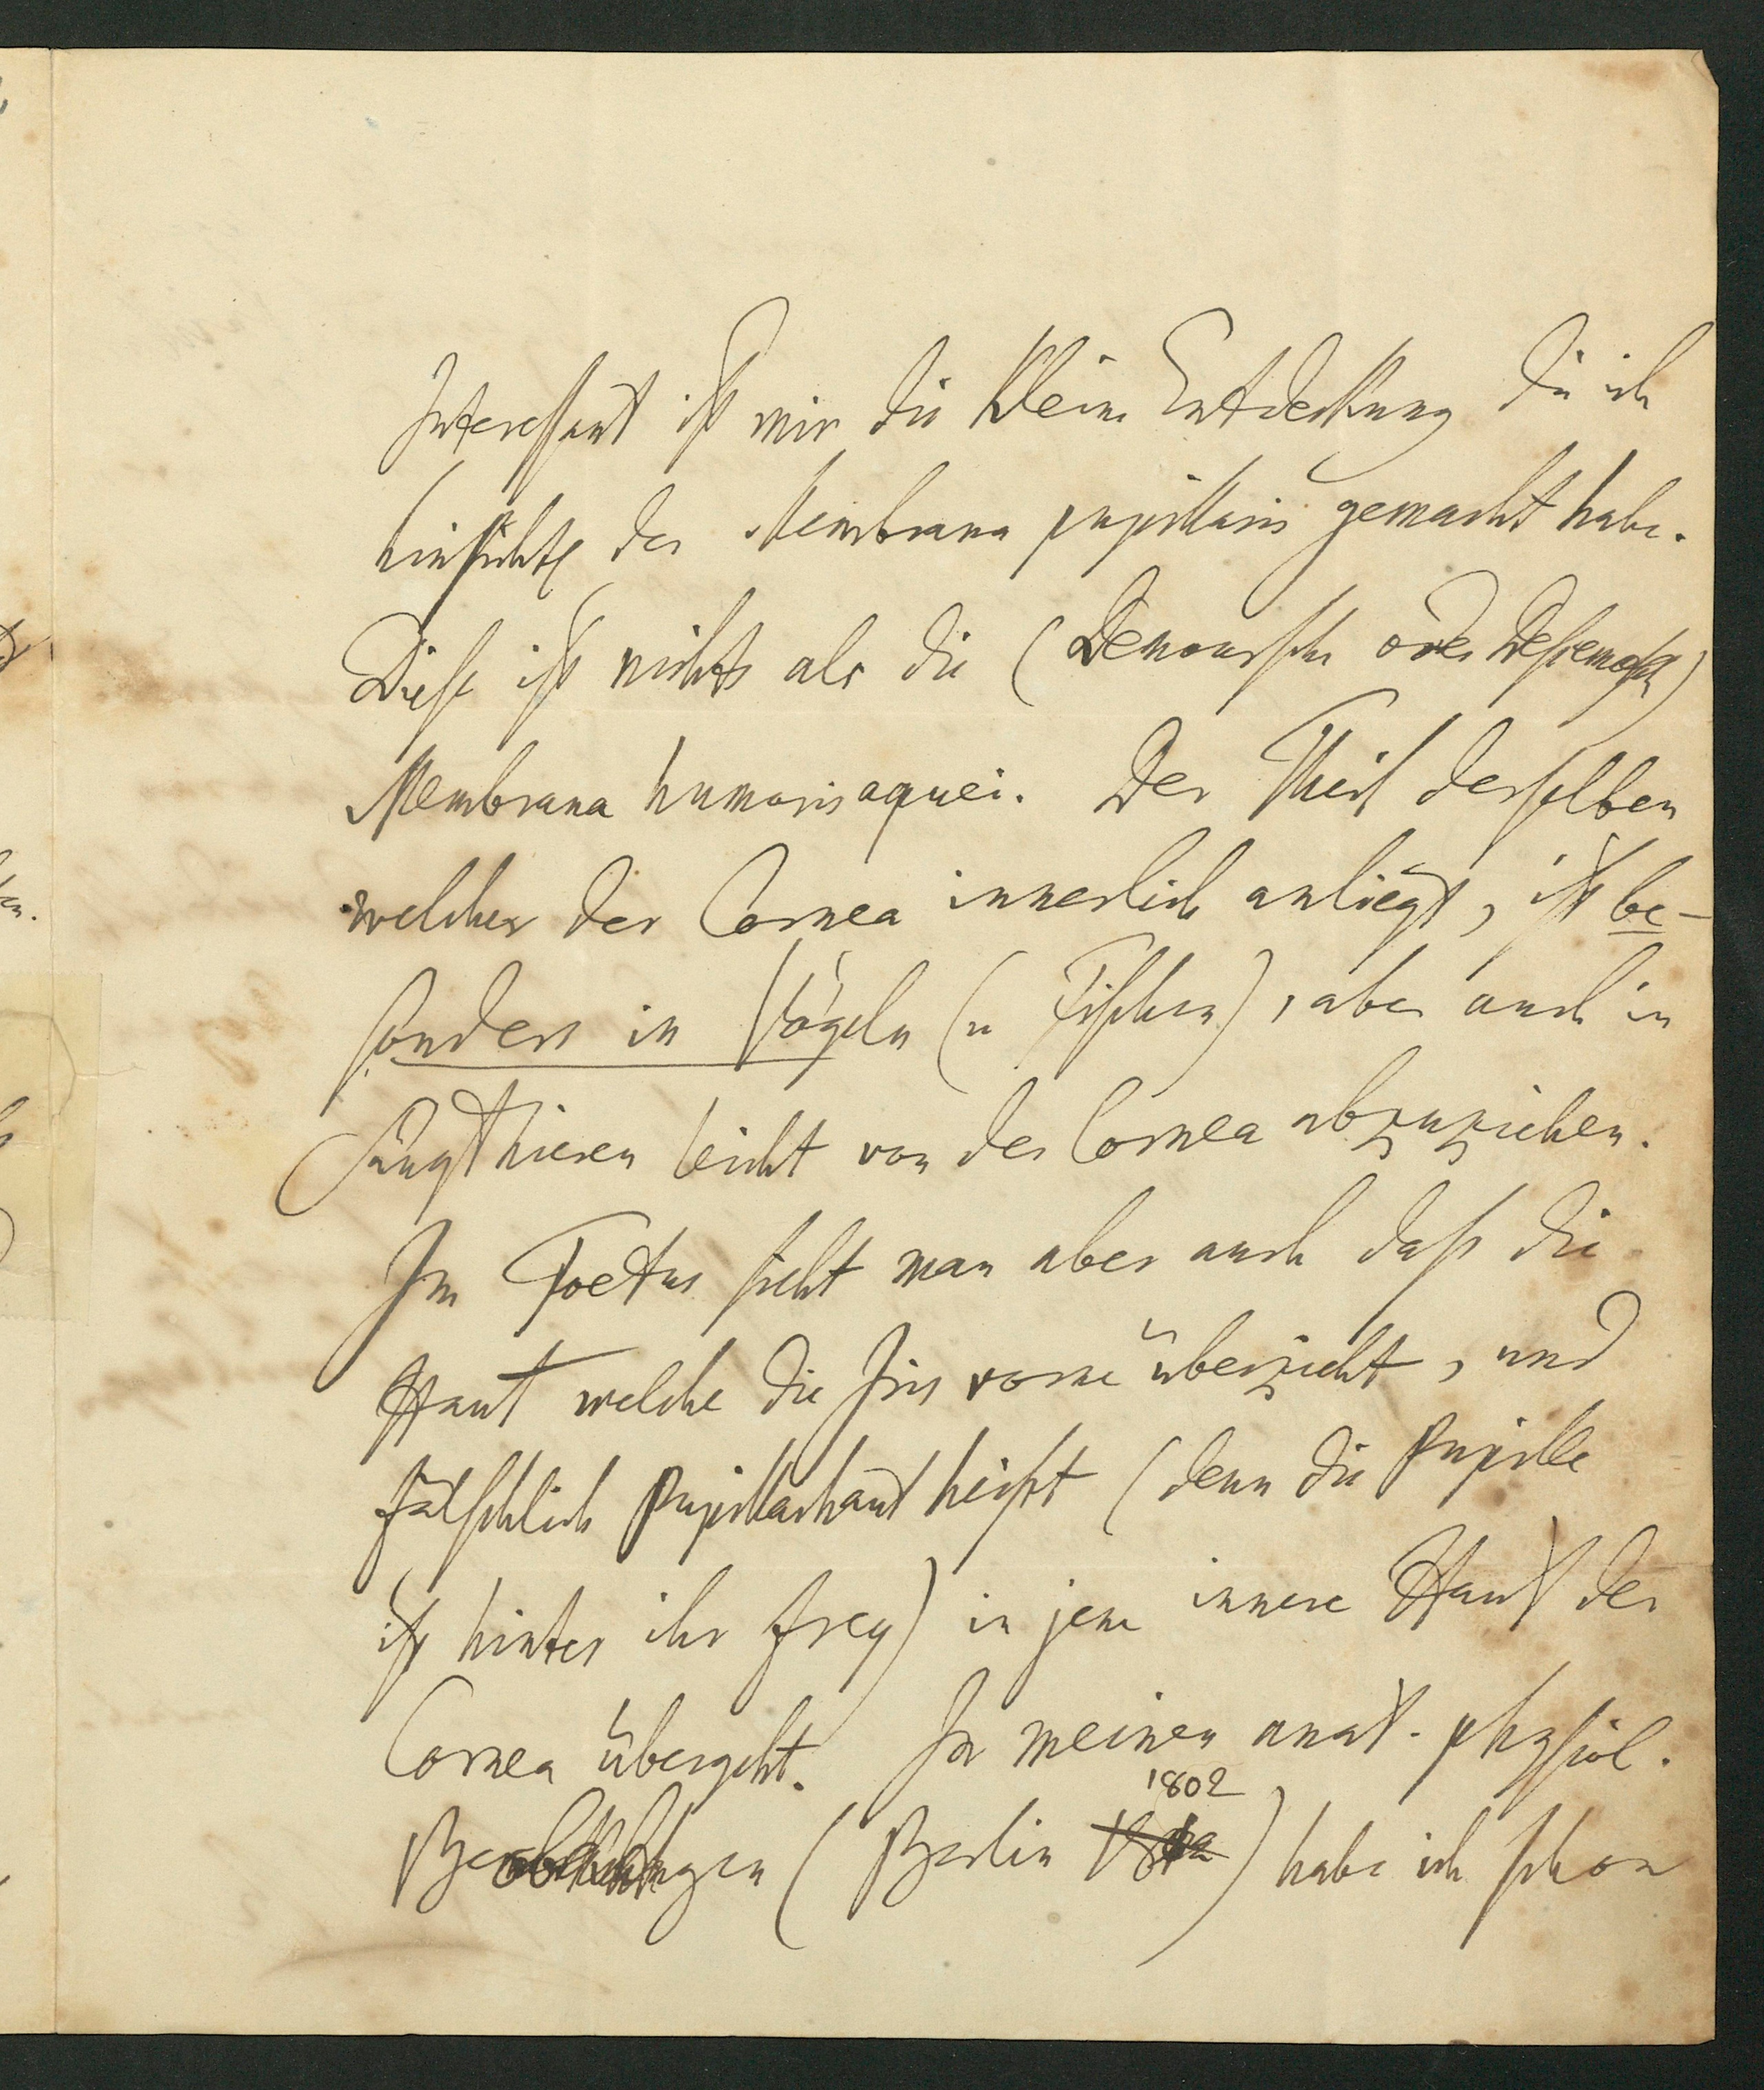 Interessant ist mir die kleine Entdeckung die ich
hinsichts der Membrana pupillaris gemacht habe.
Diese ist nichts als die (Demoursche oder Descemetsche)
Membrana humoris aquei. Der Theil derselben
welcher der Cornea innerlich anliegt, ist be-
sonders in Vögeln (u Fischen), aber auch in
Säugthieren leicht von der Cornea abzuziehen.
Im Foetus sieht man aber auch daß die
Haut welche die Iris vorne überzieht, und
fälschlich Pupillarhaut heißt (denn die Pupille
ist hinter ihr frey) in jene innere Haut der
Cornea übergeht. In meinen anat. physiol.
1802
Beobachtungen (Berlin) habe ich schon